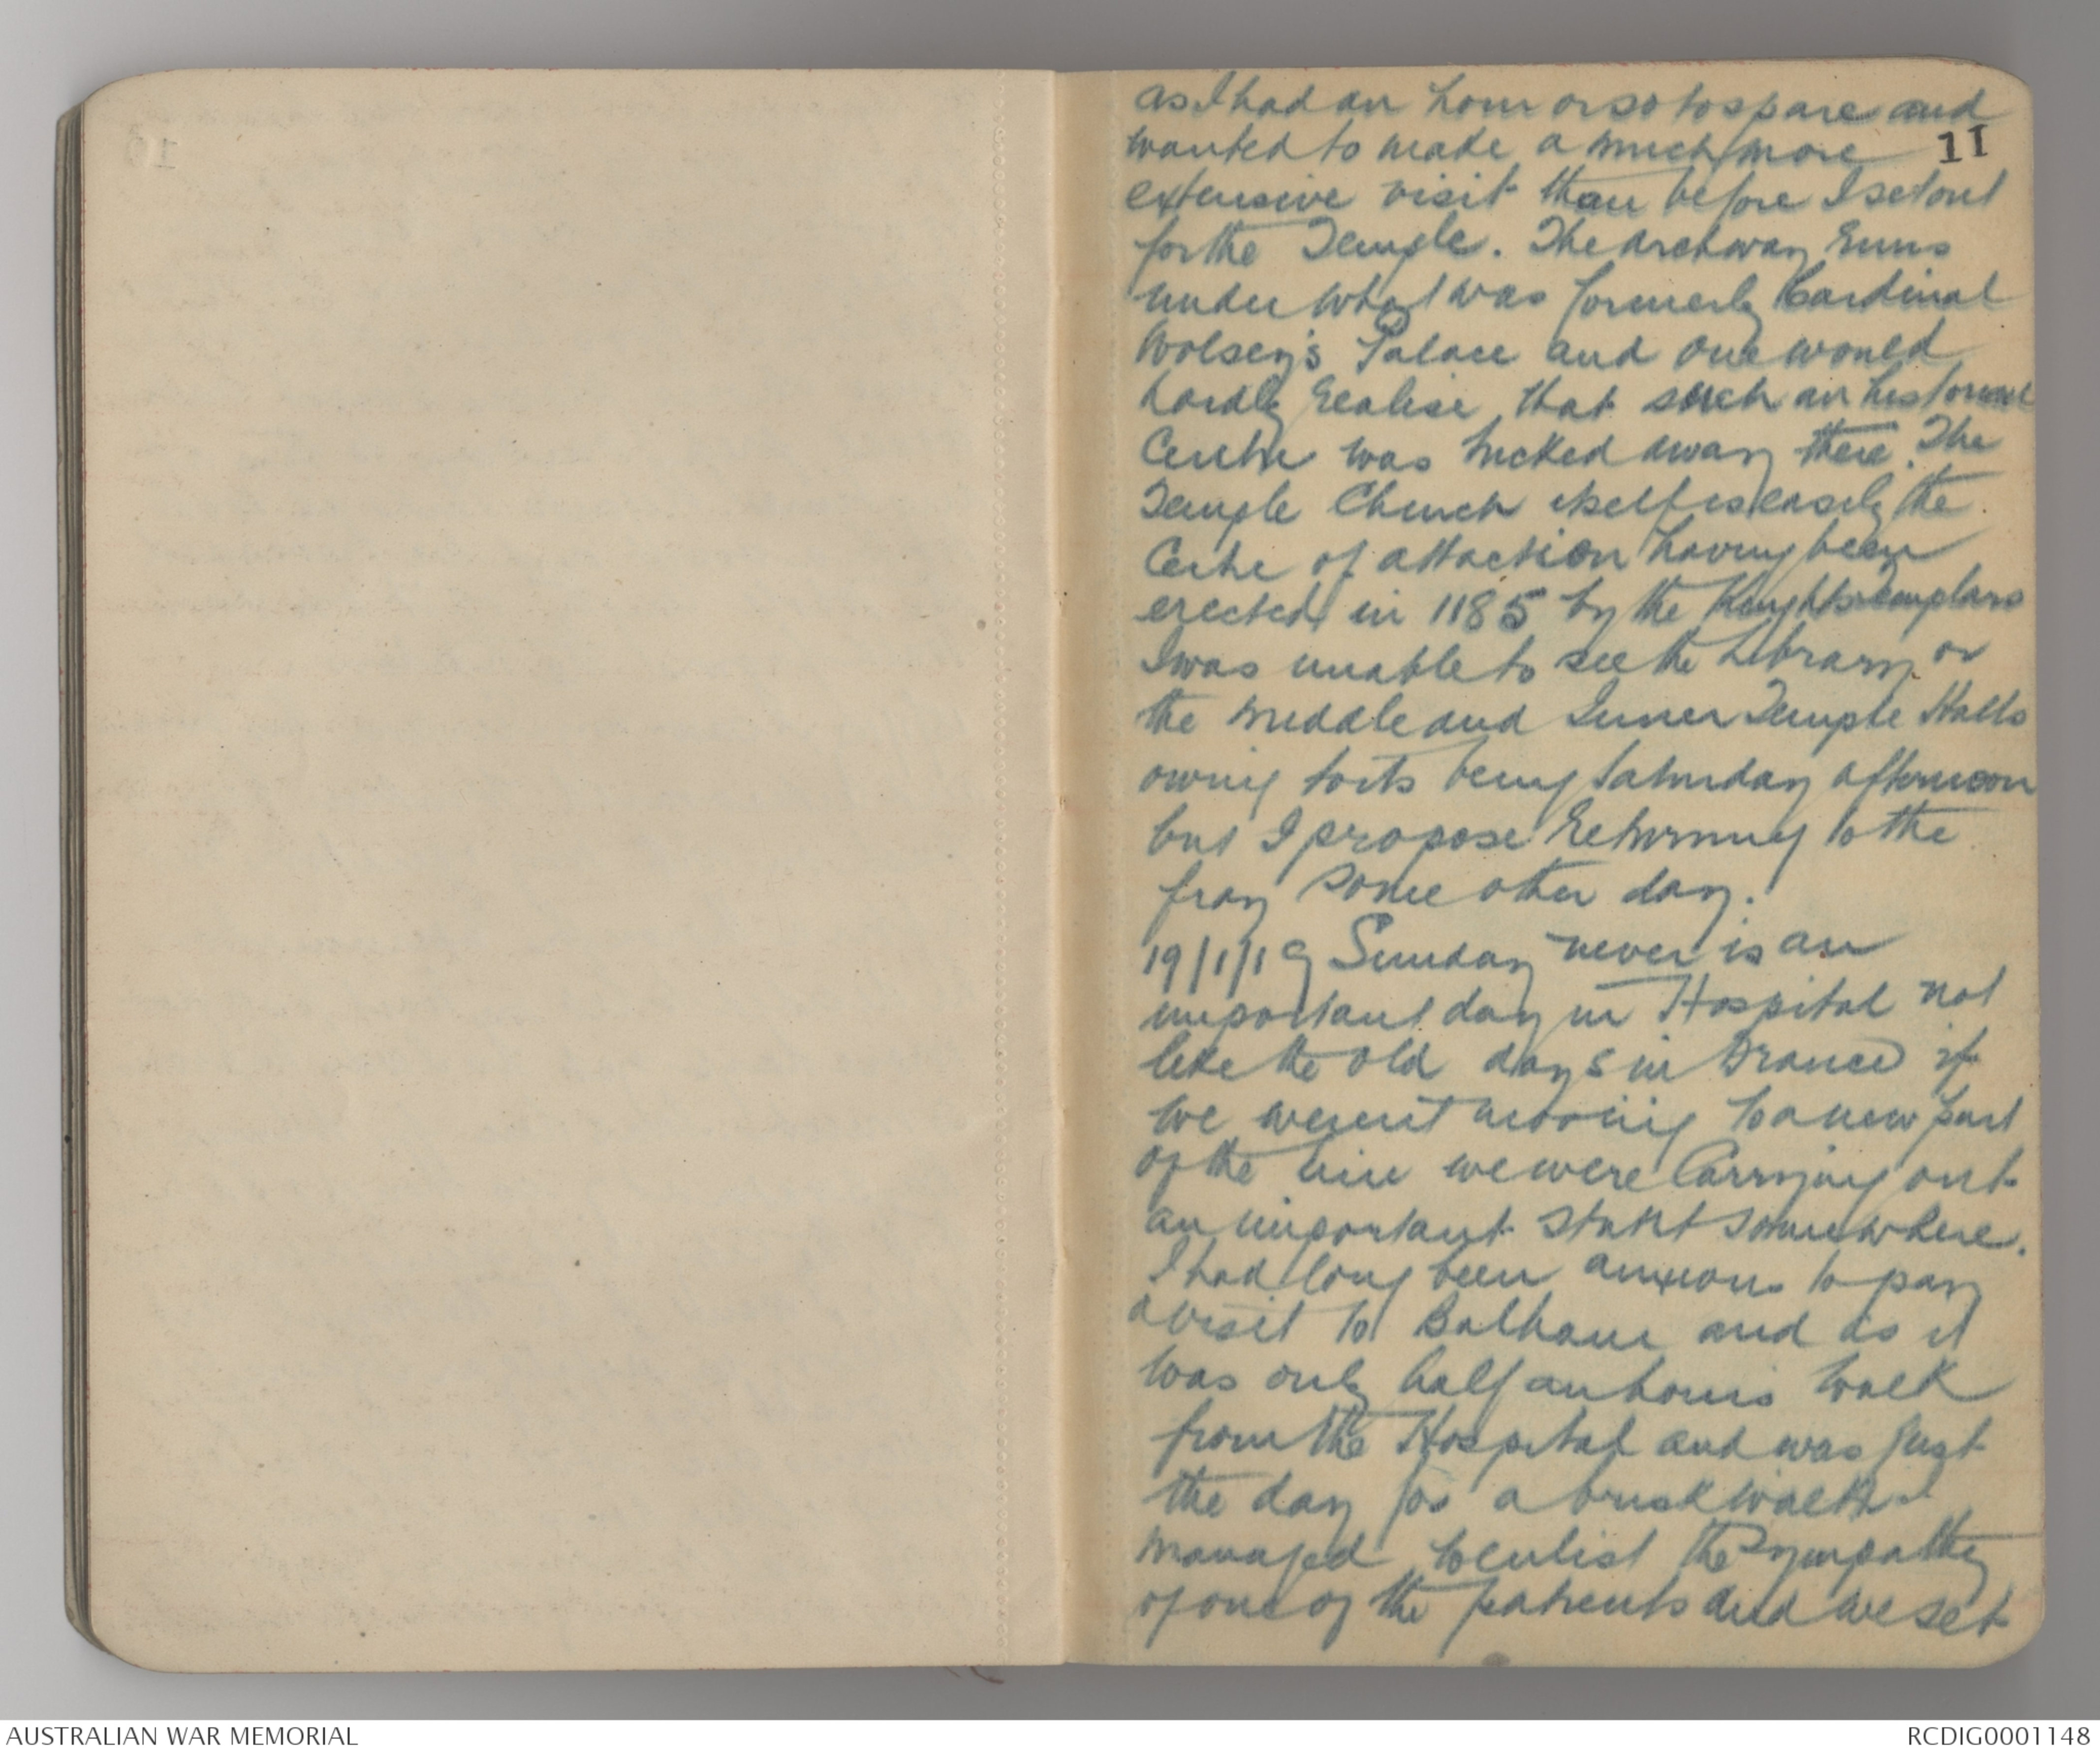 as I had an hour or so to spare and
wanted to make a much more
11
extensive visit than before I set out
for the Temple. The archway runs
under what was formerly Cardinal
Wolsey's Palace and one would
hardly realise that such an historical
Centre was tucked away there. The
Temple Church itself is easily the
Cente of attaction having been
erected in 1185 by the Knights Templars
I was unable to see the Library or
the Middle and Inner Temple Halls
owing to its being Saturday afternoon
but I propose returning to the
fray some other day.
19/1/19 Sunday never is an
important day in Hospital not
like the old days in France if
we weren't moving to a new part
of the line we were Carrying out
an important stunt somewhere.
I had long been anxious to pay
a visit to Balham and as it
was only half an hours walk
from the Hospital and was just
the day for a brisk walk I
managed to enlist the sympathy
of one of the patients and we set
AUSTRALIAN WAR MEMORIAL
RCDIG0001148